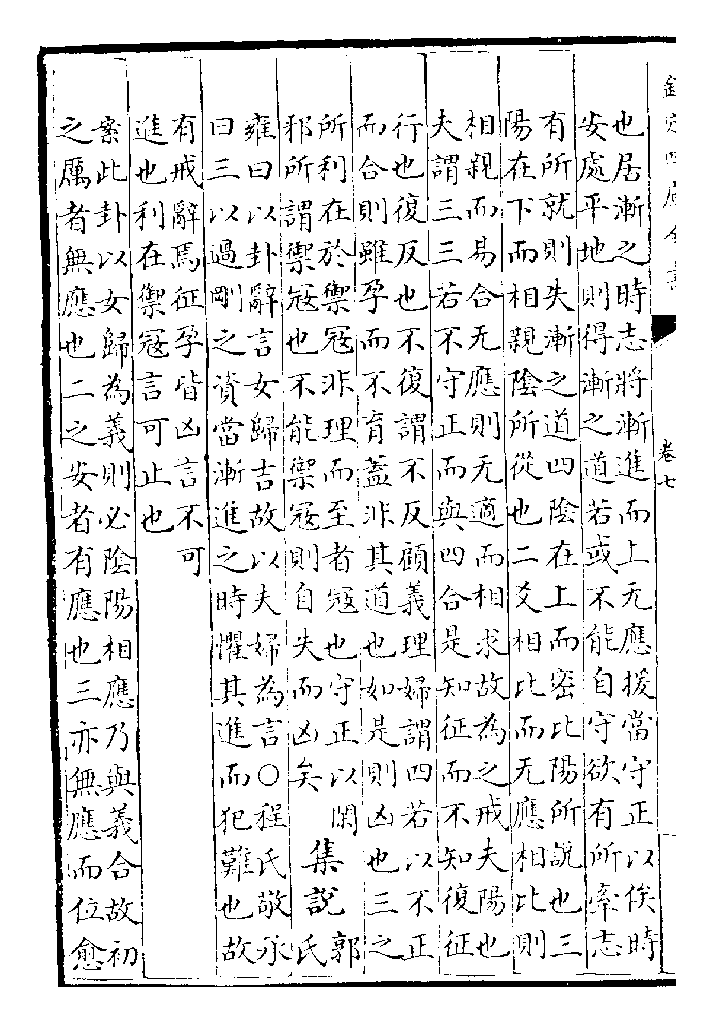 欽定四庫全書
卷七
也居漸之時志將漸進而上无應援當守正以俟時
安處平地則得漸之道若或不能自守欲有所牽志
有所就則失漸之道四陰在上而密比陽所說也三
陽在下而相親陰所從也二爻相比而无應相比則
相親而易合无應則无適而相求故為之戒夫陽也
夫謂三三若不守正而與四合是知征而不知復征
行也復反也不復謂不反顧義理婦謂四若以不正
而合則雖孕而不育蓋非其道也如是則凶也三之
所利在於禦寇非理而至者寇也守正以閑
邪所謂禦寇也不能禦寇則自失而凶矣
集說
郭
氏
雍曰以卦辭言女歸吉故以夫婦為言○程氏敬承
曰三以過剛之資當漸進之時懼其進而犯難也故
有戒辭焉征孕皆凶言不可
進也利在禦寇言可止也
案此卦以女歸為義則必陰陽相應乃與義合故初
之厲者無應也二之安者有應也三亦無應而位愈